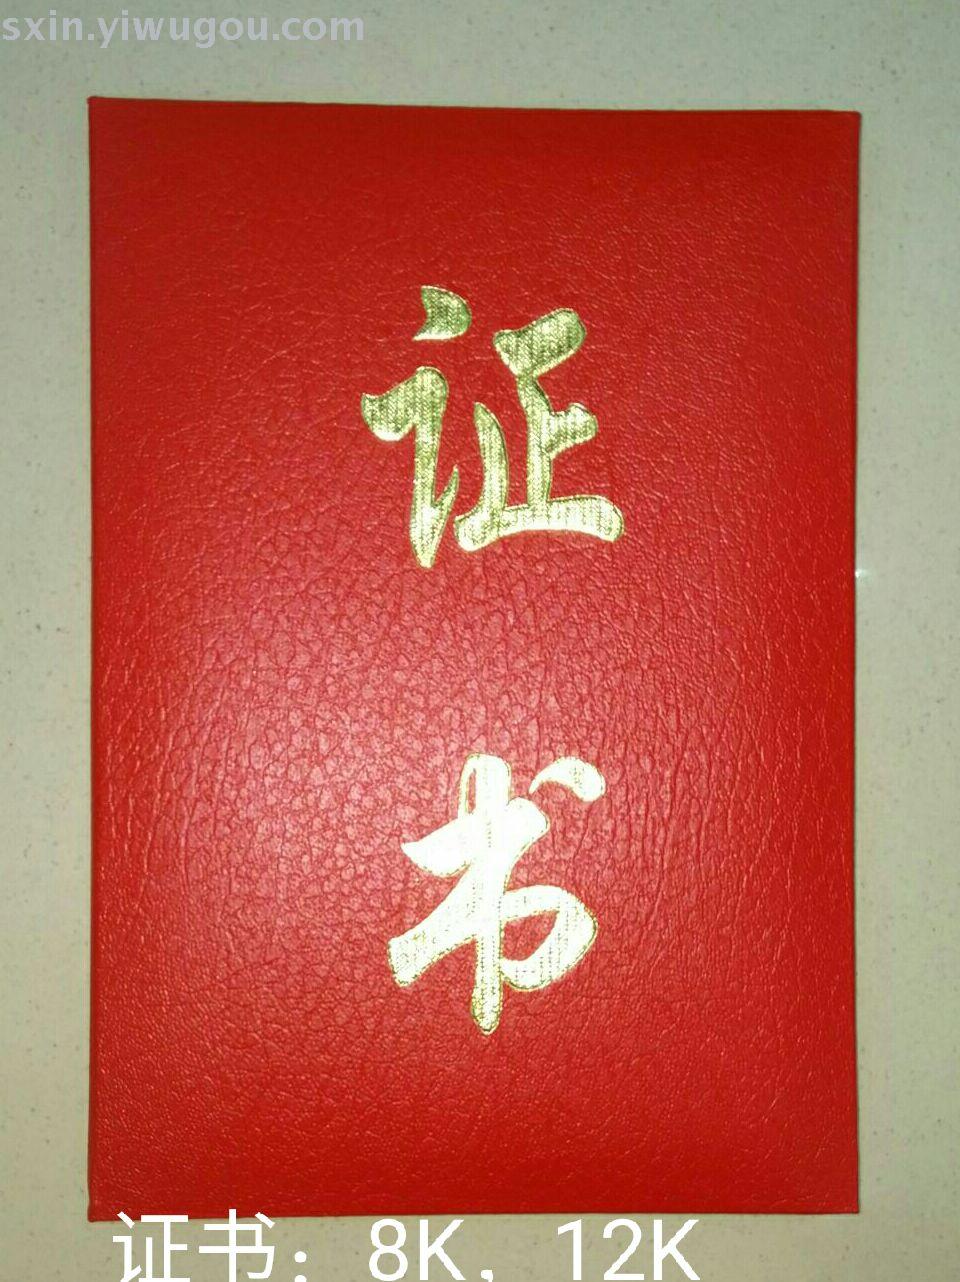 sxin.yiwugou.com
证
书
证书：8K，12K